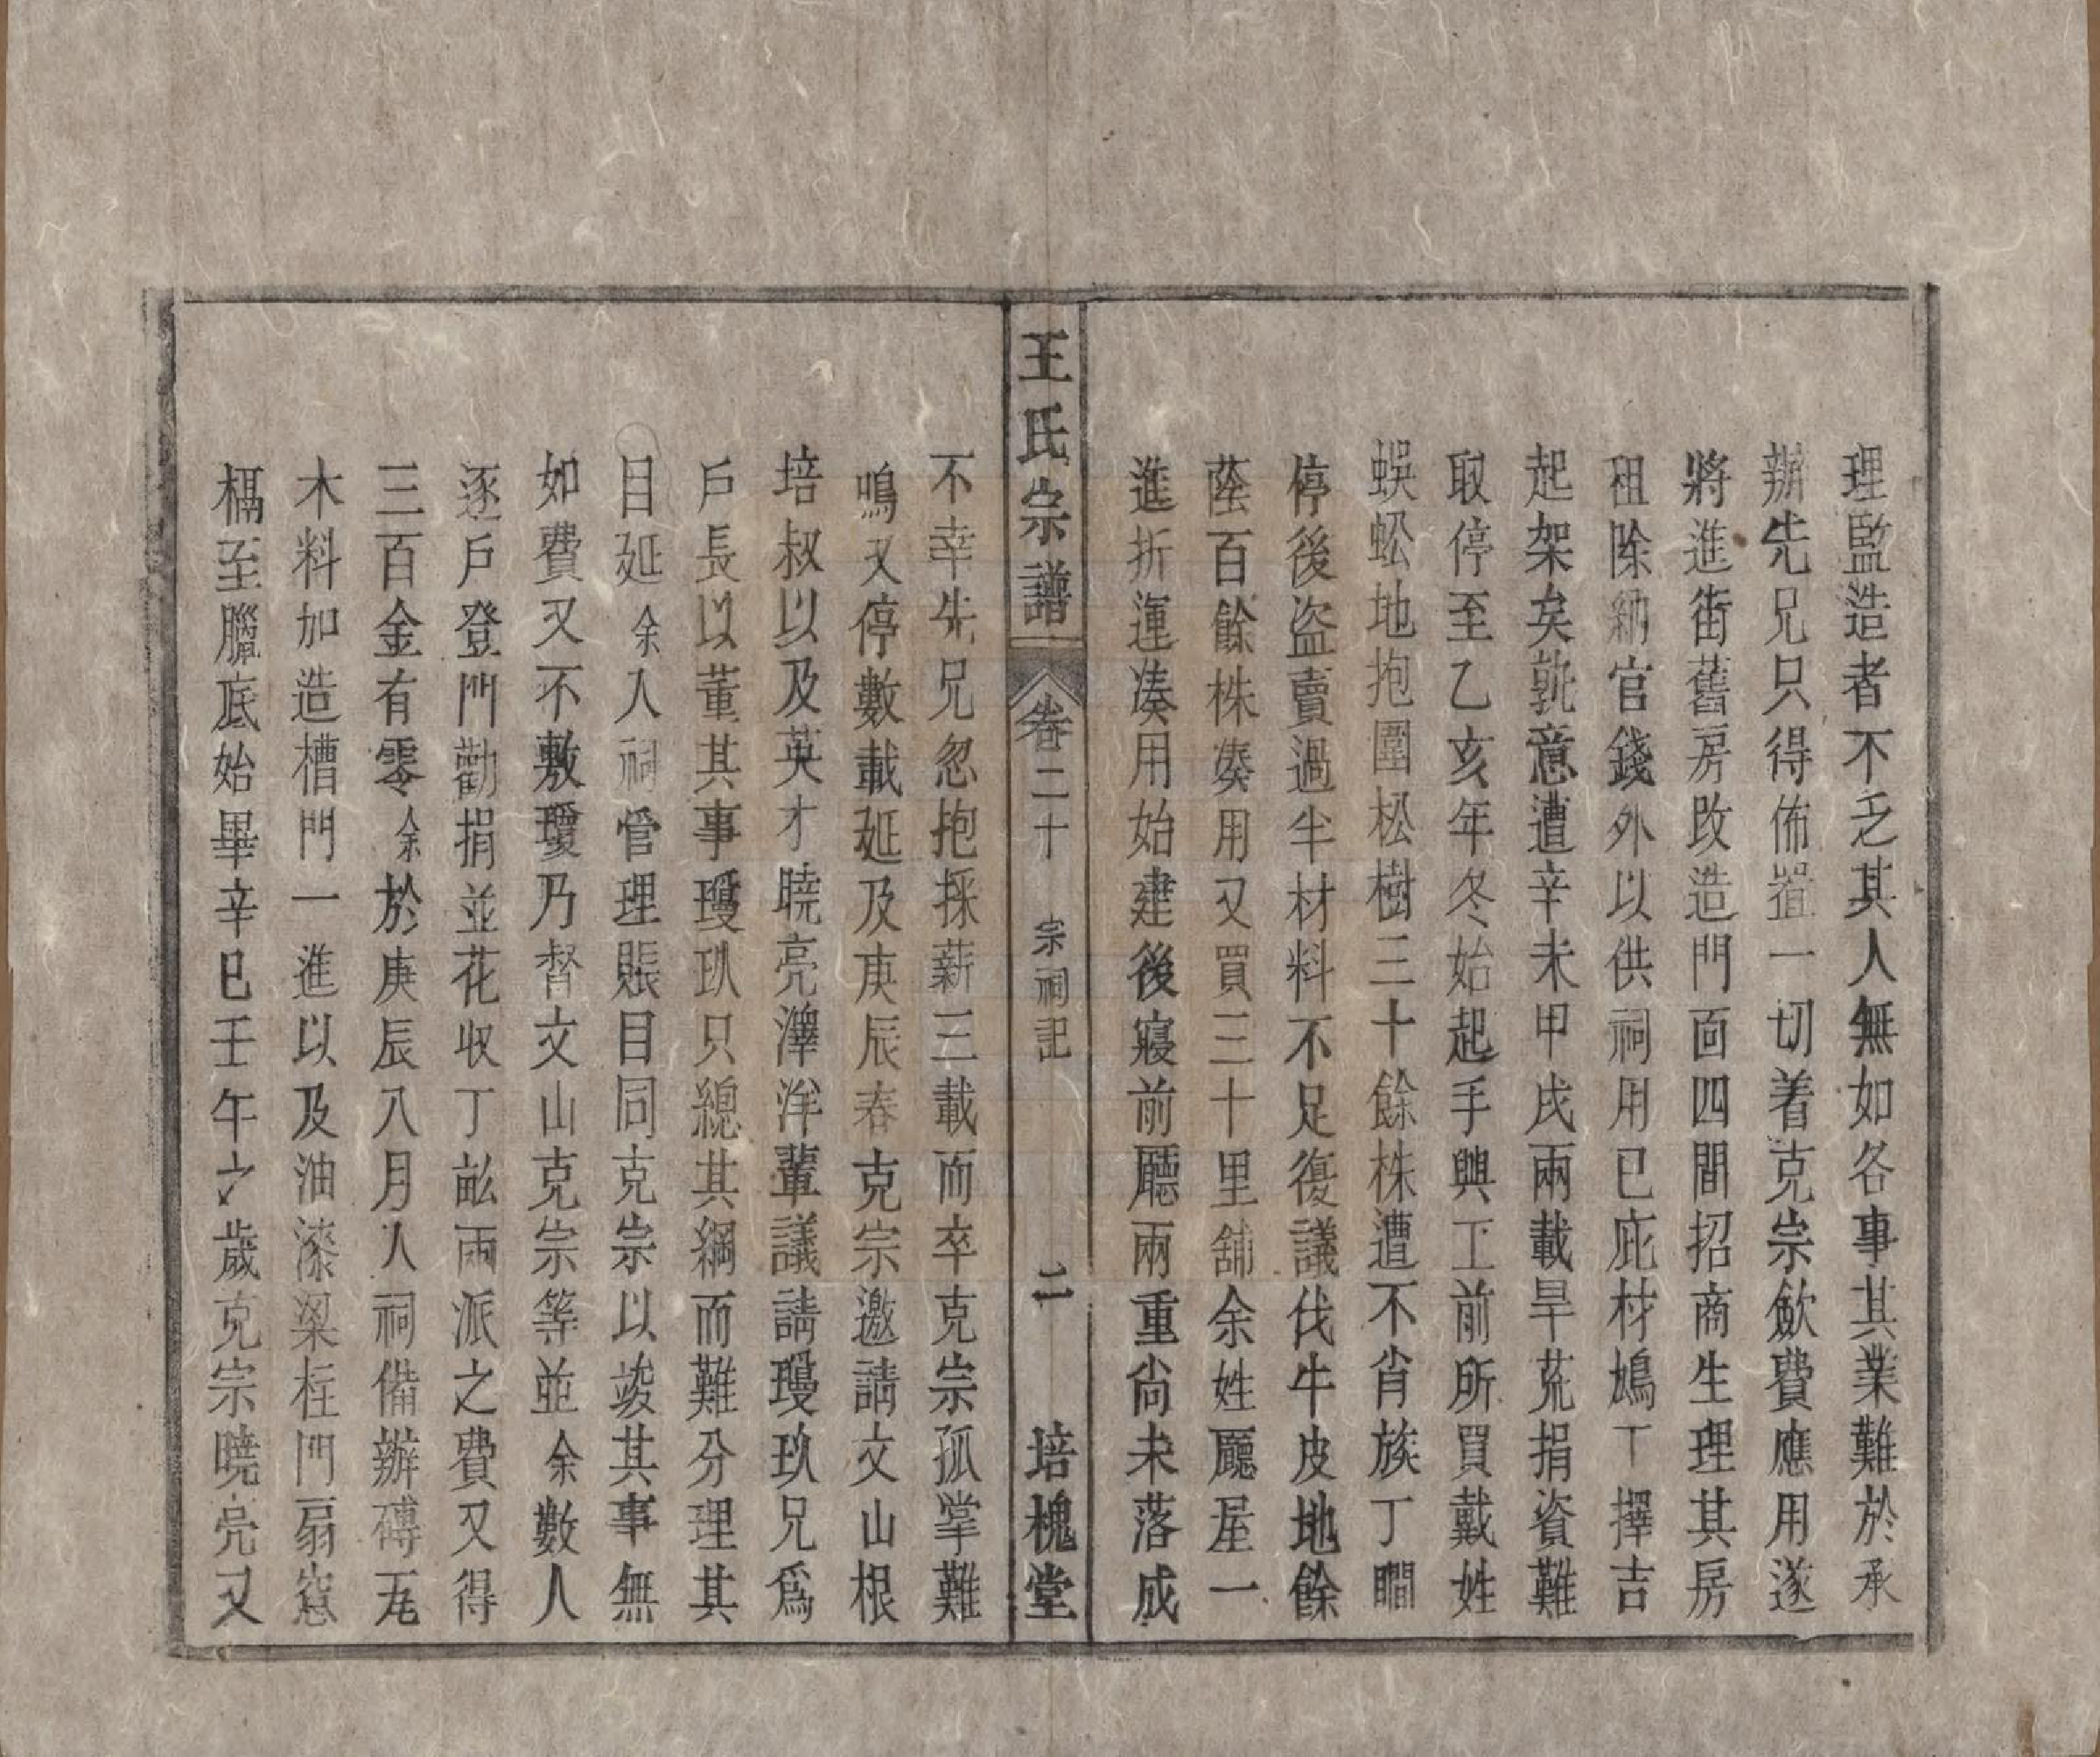 理監造者不乏其人無如各事其業難於承
辦先兄只得佈置一切着克宗歛費應用遂
將進街舊房改造門面四間招商生理其房
租除納官錢外以供祠用已庇材鳩工擇吉
起架矣孰意遭辛未甲戌兩載旱荒捐資難
取停至乙亥年冬始起手興工前所買戴姓
蜈蚣地抱圍松樹三十餘株遭不肖族丁瞷
停後盜賣過半材料不足復議伐牛皮地餘
蔭百餘株湊用又買三十里舖余姓廳屋一
進折運湊用始建後寢前廳兩重尚未落成
王氏宗譜 卷二十 宗祠記 二 培槐堂
不幸先兄忽抱採薪三載而卒克宗孤掌難
鳴又停數載延及庚辰春克宗邀請文山根
培叔以及英才曉亮澤洋輩議請璦玖兄爲
戶長以董其事璦玖只總其綱而難分理其
目延余人祠管理賬目同克宗以竣其事無
如費又不敷瓊乃督文山克宗等並余數人
逐戶登門勸捐並花收丁畝兩派之費又得
三百金有零余於庚辰八月人祠備辦磚瓦
木料加造槽門一進以及油漆梁柱門扇窻
槅至臘底始畢辛巳壬午之歲克宗曉亮又